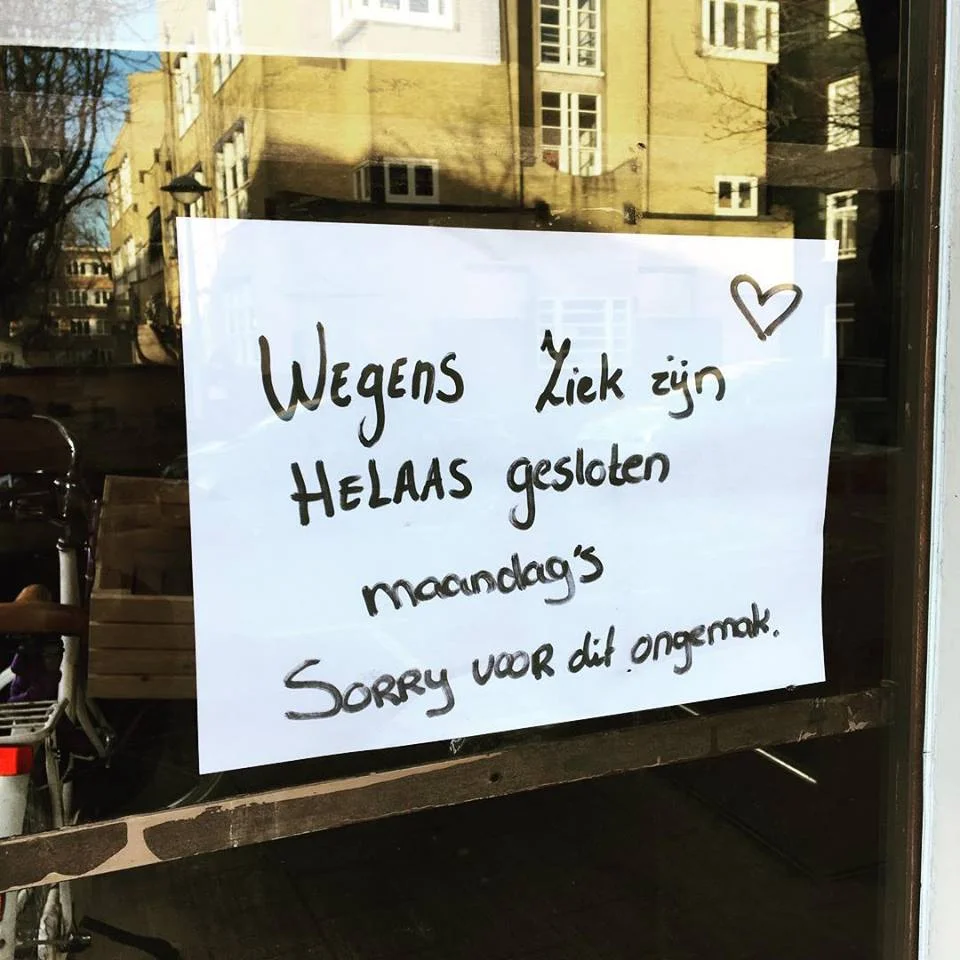 WEgEnS Ziek zijn
HELAAS gesloten
maandag's
SORRy VOOR dit ongemak.